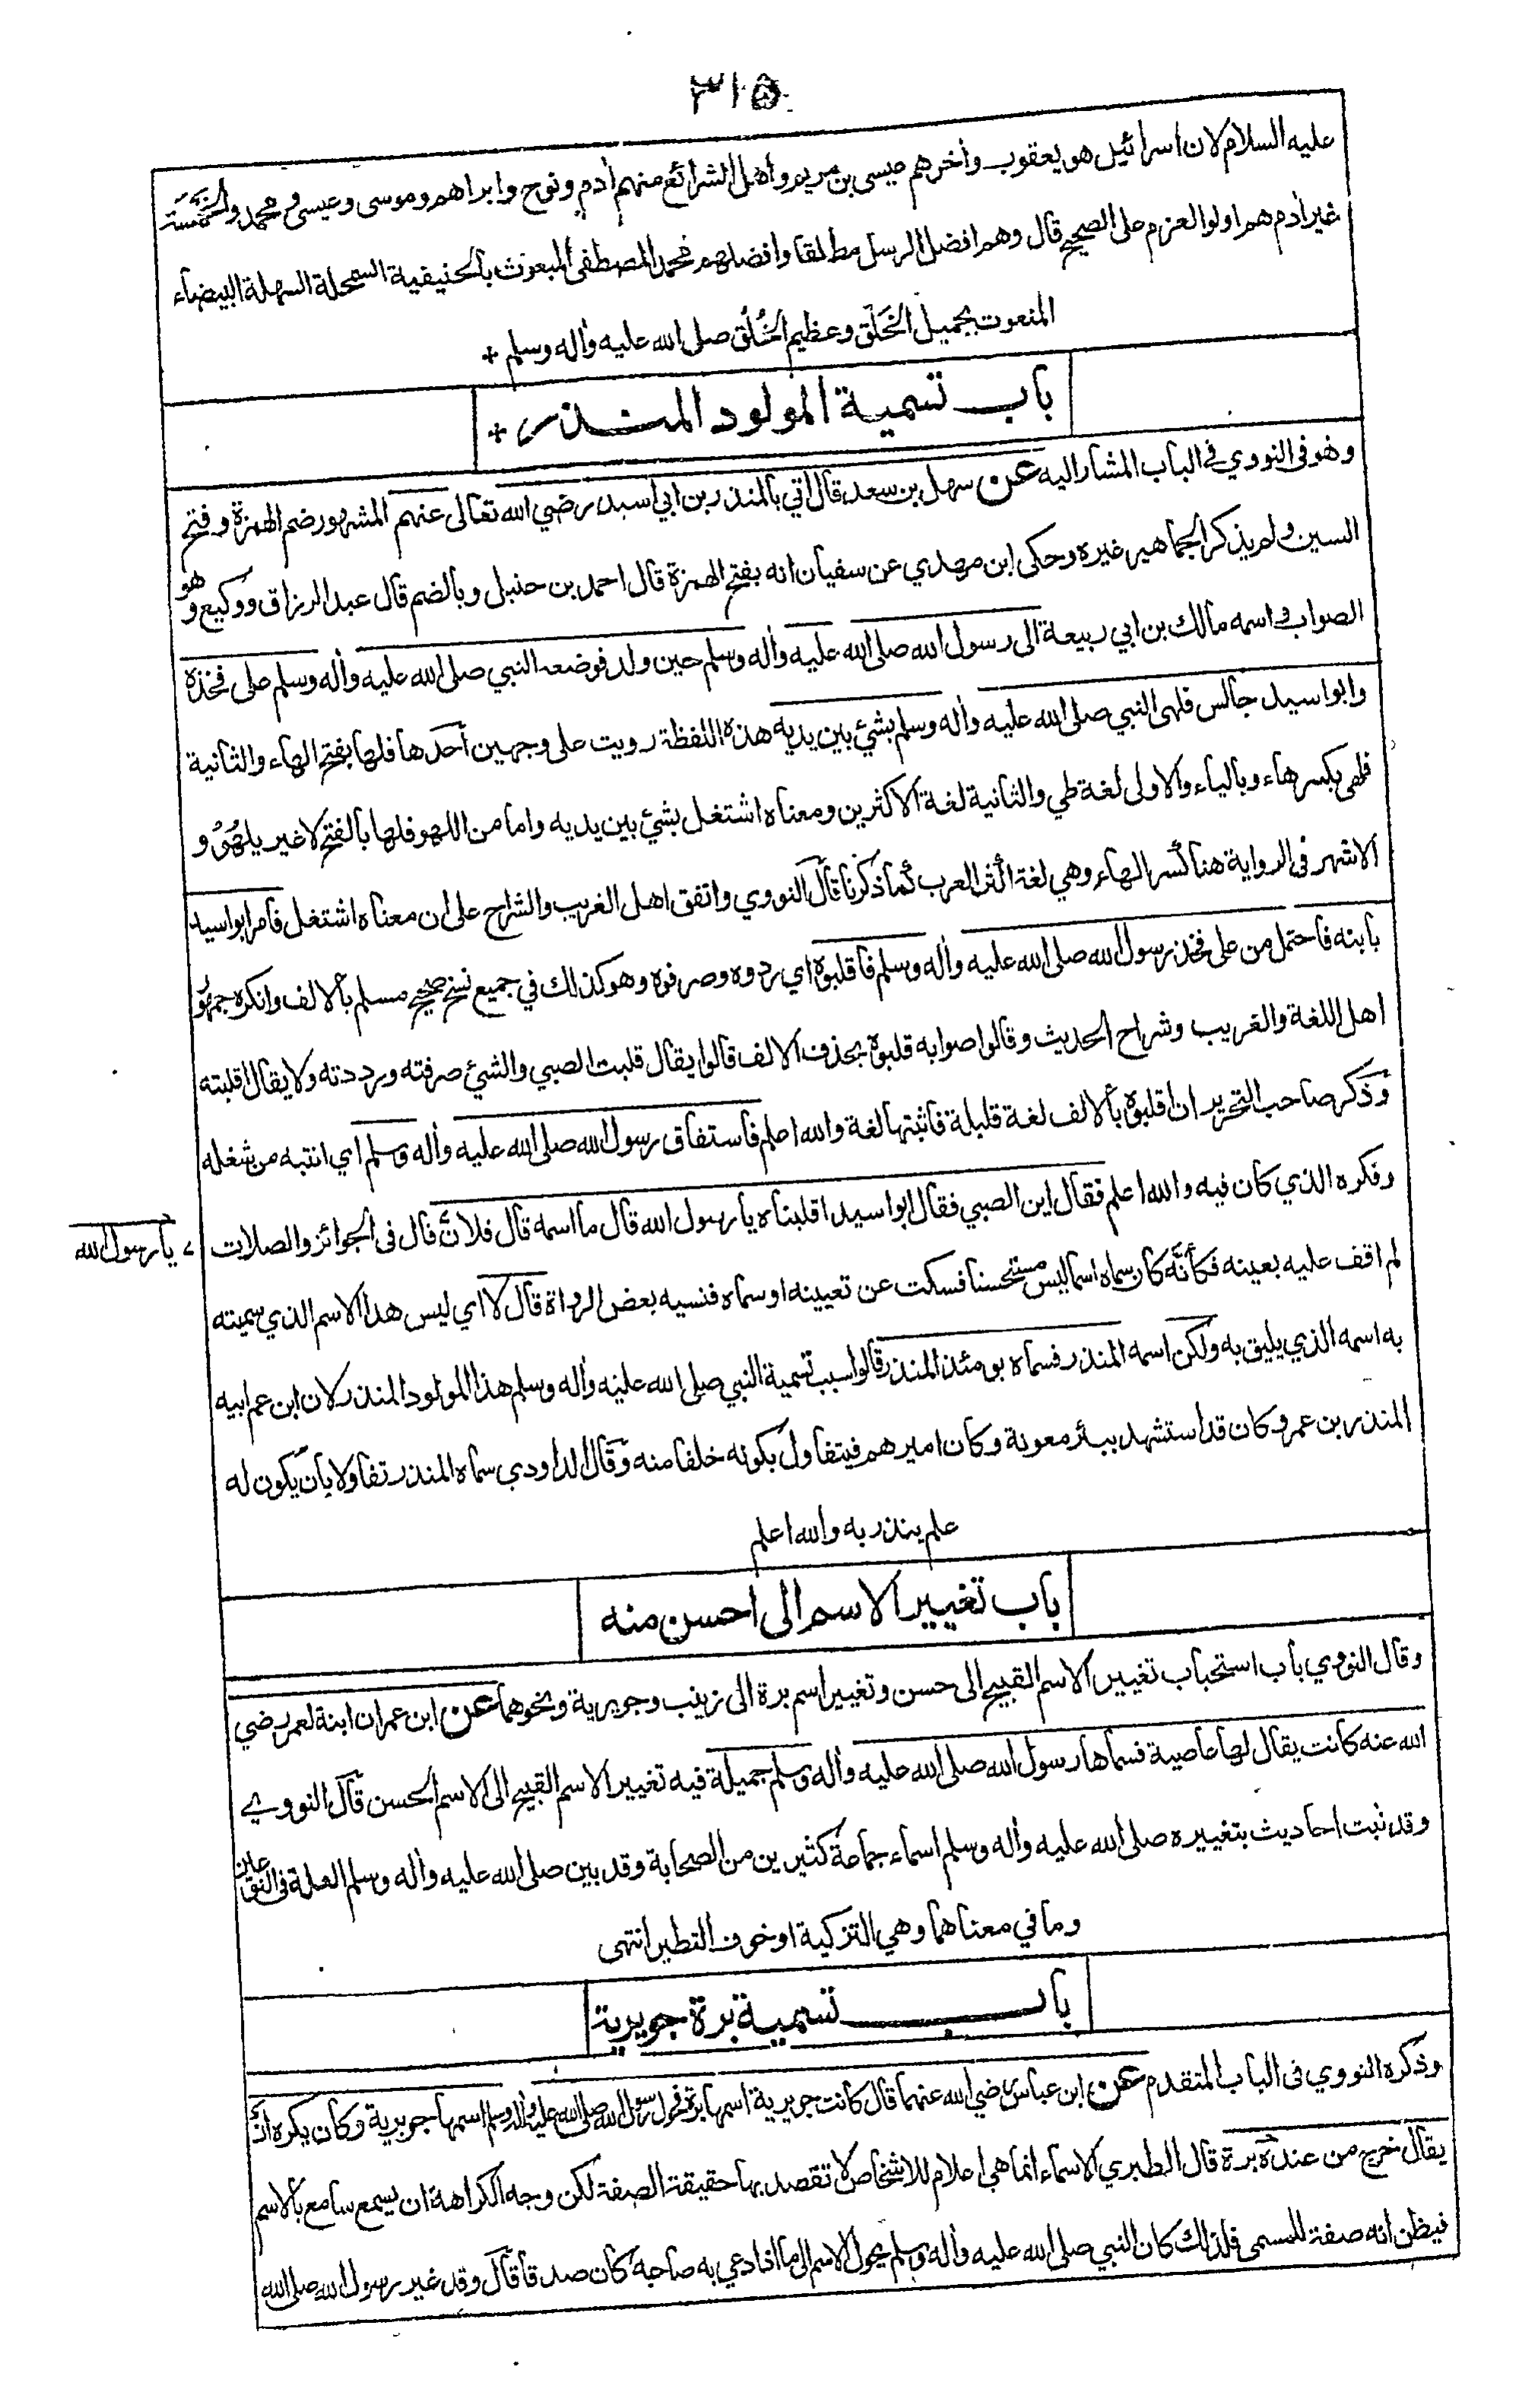 ٣١٥
عليه السلام لان اسرائيل هو يعقوب وأخرهم عيسى بن مريم وأهل الشرائع منهم أدم ونوح وابراهم وموسى وعيسى ومحمد والخمسة
غير أدم هم اولوا العزم على الصحيح قال وهم افضل الرسل مطلقا وافضلهم محمد المصطفى المبعوث بالحنيفية السمحلة السهلة البيضاء
المنعوت بجميل الخَلْق وعظيم الخُلُق صلى الله عليه وأله وسلم +
باب تسمية المولود المنذر +
وهو فى النووي في الباب المشار اليه عن سهل بن سعد قال اتي بالمنذر بن ابي اسيد رضي الله تعالى عنهم المشهور ضم الهمزة وفتح
السين ولم يذكر الجماهير غيره وحكى ابن مهدي عن سفيان انه بفتح الهمزة قال احمد بن حنبل وبالضم قال عبد الرزاق ووكيع وهو
الصواب واسمه مالك بن ابي ربيعة الى رسول الله صلى الله عليه وأله وسلم حين ولد فوضعه النبي صلى الله عليه وأله وسلم على فخذه
وابو اسيد جالس فلهى النبي صلى الله عليه وأله وسلم بشئ بين يديه هذه اللفظة رويت على وجهين أحدها فلها بفتح الهاء والثانية
فلهي بكسر هاء وبالياء والاولى لغة طي والثانية لغة الاكثرين ومعناه اشتغل بشئ بين يديه واما من اللهو فلها بالفتح لا غير يلهُوُ و
الاشهر فى الرواية هنا كسر الهاء وهي لغة اكثر العرب كما ذكرنا قال النووي واتفق اهل الغريب والشراح على ان معناه اشتغل فامر ابو اسيد
بابنه فاحتمل من على فخذ رسول الله صلى الله عليه وأله وسلم فاقلبوه اي ردوه وصرفوه وهو كذلك في جميع نسخ صحيح مسلم بألالف وانكره جمهور
اهل اللغة والغريب وشراح الحديث وقالوا صوابه قلبوه بحذف الالف قالوا يقال قلبت الصبي والشئ صرفته ورددته ولا يقال اقلبته
وذكر صاحب التحرير ان اقلبوه بألالف لغة قليلة فاثبتها لغة والله اعلم فاستفاق رسول الله صلى الله عليه وأله وسلم اي انتبه من شغله
وفكره الذي كان فيه والله اعلم فقال اين الصبي فقال ابو اسيد اقلبناه يا رسول الله قال ما اسمه قال فلان قال فى الجوائز والصلات
يا رسول الله
لم اقف عليه بعينه فكأنّه كان سماه اسما ليس مستحسنا فسكت عن تعيينه او سماه فنسيه بعض الرواة قال لا اي ليس هذا الاسم الذي سميته
به اسمه الذي يليق به ولكن اسمه المنذر فسماه يومئذ المنذر قالوا سبب تسمية النبي صلى الله عليه وأله وسلم هذا المولود المنذر لان ابن عم ابيه
المنذر بن عمرو كان قد استشهد ببئر معونة وكان اميرهم فيتفاول بكونه خلفا منه وقال الداودي سماه المنذر تفاولا بان يكون له
علم ينذر به والله اعلم
باب تغيير الاسم الى احسن منه
وقال النووي باب استحباب تغيير الاسم القبيح الى حسن وتغيير اسم برة الى زينب وجويرية ونحوهما عن ابن عمر ان ابنة لعمر رضي
الله عنه كانت يقال لها عاصية فسماها رسول الله صلى الله عليه وأله وسلم جميلة فيه تغيير الاسم القبيح الى الاسم الحسن قال النووي
وقد ثبت احاديث بتغييره صلى الله عليه وأله وسلم اسماء جماعة كثيرين من الصحابة وقد بين صلى الله عليه وأله وسلم العلة فى النوعين
وما في معناهما وهي التزكية او خوف التطير انتهى
باب تسمية برة جويرية
وذكره النووي فى الباب المتقدم عن ابن عباس رضي الله عنهما قال كانت جويرية اسمها برة فحول رسول الله صلى الله عليه وأله وسلم اسمها جويرية وكان يكره ان
يقال خرج من عند برة قال الطبري الاسماء انما هي اعلام للاشخاص لا تقصد بها حقيقة الصفة لكن وجه الكراهة ان يسمع سامع بألاسم
فيظن انه صفة للمسمى فلذلك كان النبي صلى الله عليه وأله وسلم يحول الاسم الى ما اذا دعي به صاحبه كان صدقا قال وقد غير رسول الله صلى الله